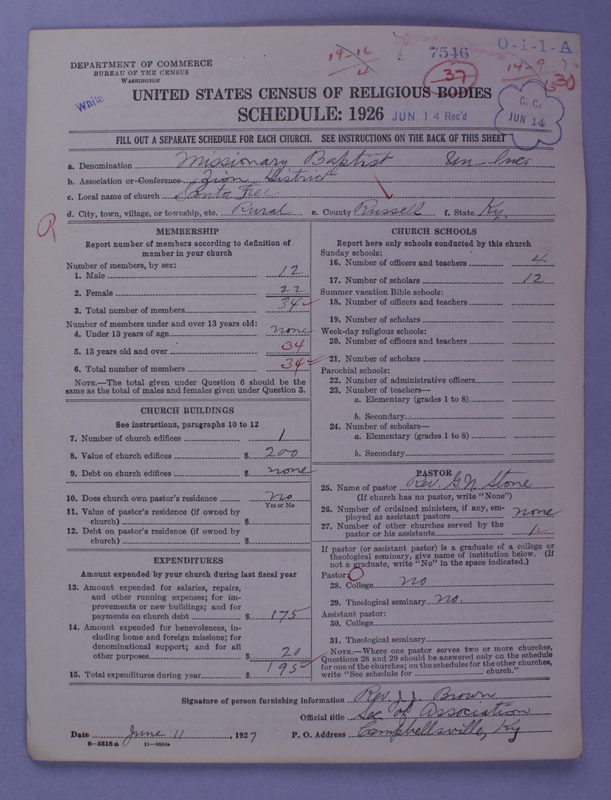 DEPARTMENT OF COMMERCE
BUREAU OF THE CENSUS
WASHINGTON
White
19-12
4
7546
37
O-1-1-A
14-9
C. C.
JUN 14
UNITED STATES CENSUS OF RELIGIOUS BODIES
SCHEDULE: 1926 JUN 14 Rec'd
FILL OUT A SEPARATE SCHEDULE FOR EACH CHURCH. SEE INSTRUCTIONS ON THE BACK OF THIS SHEET
a. Denomination Missionary Baptist
b. Association or Conference Zion District
c. Local name of church Santa Fee
d. City, town, village, or township, etc. Rural e. County Russell f. State Ky.
MEMBERSHIP
Report number of members according to definition of
member in your church
Number of members, by sex:
1. Male 12
2. Female 22
3. Total number of members 34
Number of members under and over 13 years old:
4. Under 13 years of age none
5. 13 years old and over 34
6. Total number of members 34
NOTE.—The total given under Question 6 should be the
same as the total of males and females given under Question 3.
CHURCH BUILDINGS
See instructions, paragraphs 10 to 12
7. Number of church edifices 1
8. Value of church edifices $ 200
9. Debt on church edifices $ none
10. Does church own pastor's residence no
Yes or No
11. Value of pastor's residence (if owned by
church) $
12. Debt on pastor's residence (if owned by
church) $
EXPENDITURES
Amount expended by your church during last fiscal year
13. Amount expended for salaries, repairs,
and other running expenses; for im-
provements or new buildings; and for
payments on church debt $ 175
14. Amount expended for benevolences, in-
cluding home and foreign missions; for
denominational support; and for all
other purposes $ 20
15. Total expenditures during year $ 195
CHURCH SCHOOLS
Report here only schools conducted by this church
Sunday schools:
16. Number of officers and teachers 4
17. Number of scholars 12
Summer vacation Bible schools:
18. Number of officers and teachers
19. Number of scholars
Week-day religious schools:
20. Number of officers and teachers
21. Number of scholars
Parochial schools:
22. Number of administrative officers
23. Number of teachers—
a. Elementary (grades 1 to 8)
b. Secondary
24. Number of scholars—
a. Elementary (grades 1 to 8)
b. Secondary
PASTOR
25. Name of pastor Rev. G. N. Stone
(If church has no pastor, write "None")
26. Number of ordained ministers, if any, em-
ployed as assistant pastors none
27. Number of other churches served by the
pastor or his assistants
If pastor (or assistant pastor) is a graduate of a college or
theological seminary, give name of institution below. (If
not a graduate, write "No" in the space indicated.)
Pastor:
28. College no
29. Theological seminary no.
Assistant pastor:
30. College
31. Theological seminary
NOTE.—Where one pastor serves two or more churches,
Questions 28 and 29 should be answered only on the schedule
for one of the churches; on the schedules for the other churches,
write "See schedule for church."
Signature of person furnishing information Rev. J. J. Brown
Official title Sec of Association
Date June 11, 1927 P. O. Address Campbellsville, Ky
8—5518a